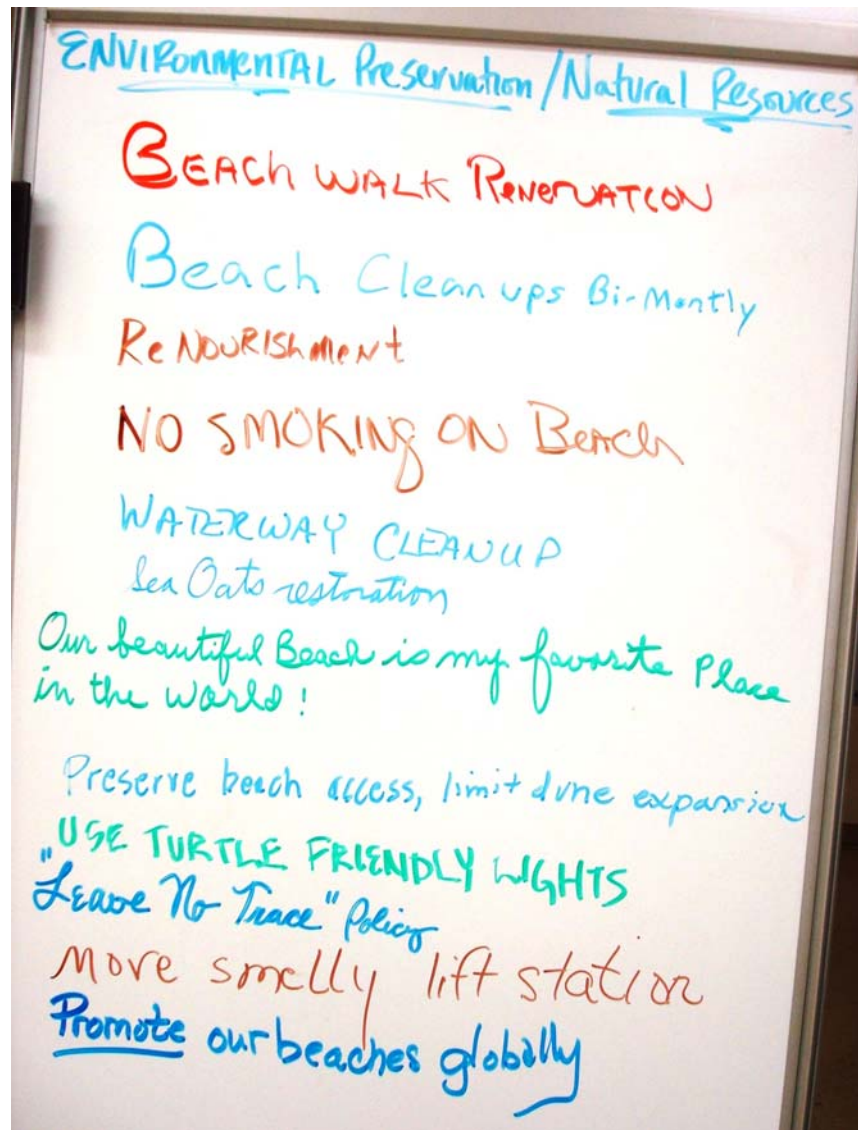 ENVIRONMENTAL Preservation / Natural Resources
BEACH WALK RENERVATION
Beach Clean ups Bi-Montly
ReNOURIShmeNt
NO SMOKING ON Beach
WATERWAY CLEANUP
Sea Oats restoration
Our beautiful Beach is my favorite Place
in the world!
Preserve beach access, limit dune expansion
"USE TURTLE FRIENDLY LIGHTS
Leave No Trace" Policy
Move smelly lift station
Promote our beaches globally